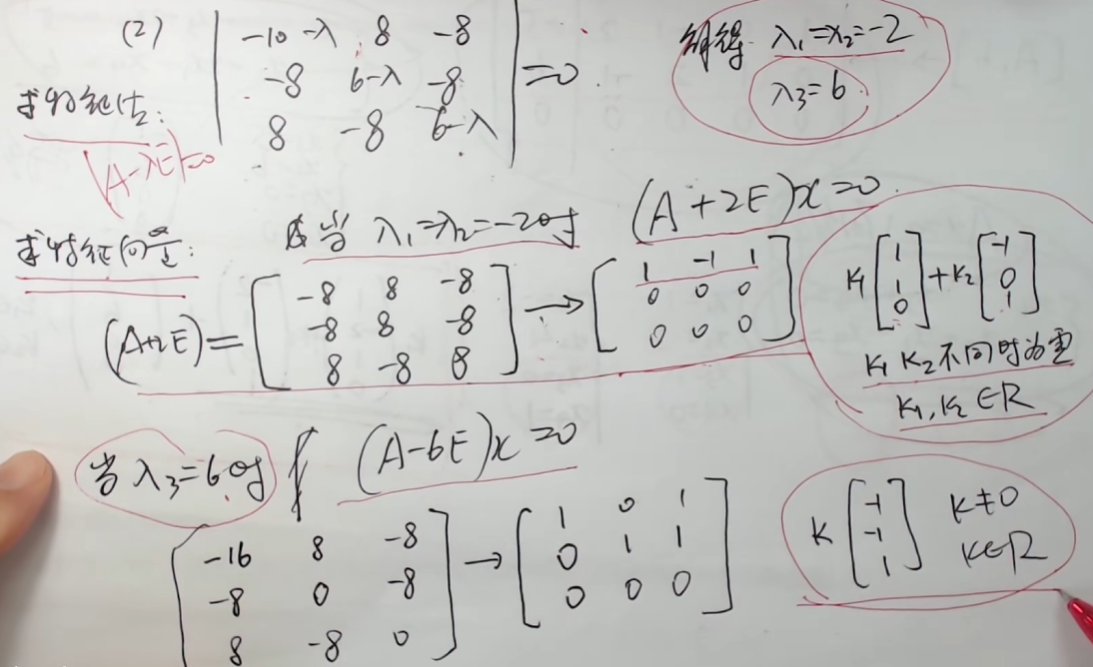 (2) | -10-λ 8 -8 |
| -8 6-λ -8 | =0
| 8 -8 6-λ |
解得 λ₁=λ₂=-2
λ₃=6
求特征值:
|A-λE|=0
求特征向量: 当 λ₁=λ₂=-2时 (A+2E)x=0
(A+2E)= [ -8 8 -8 ] → [ 1 -1 1 ]
[ -8 8 -8 ] [ 0 0 0 ]
[ 8 -8 8 ] [ 0 0 0 ]
K₁ [ 1 1 0 ] + K₂ [ -1 0 1 ]
K₁ K₂ 不同时为零
K₁, K₂ ∈R
当 λ₃=6时 (A-6E)x=0
[ -16 8 -8 ] → [ 1 0 1 ]
[ -8 0 -8 ] [ 0 1 1 ]
[ 8 -8 0 ] [ 0 0 0 ]
K [ -1 -1 1 ] K≠0
K∈R